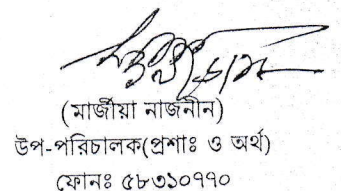 (মার্জীয়া নাজনীন)
উপ-পরিচালক(প্রশাঃ ও অর্থ)
ফোনঃ ৫৮৩১০৭৭০